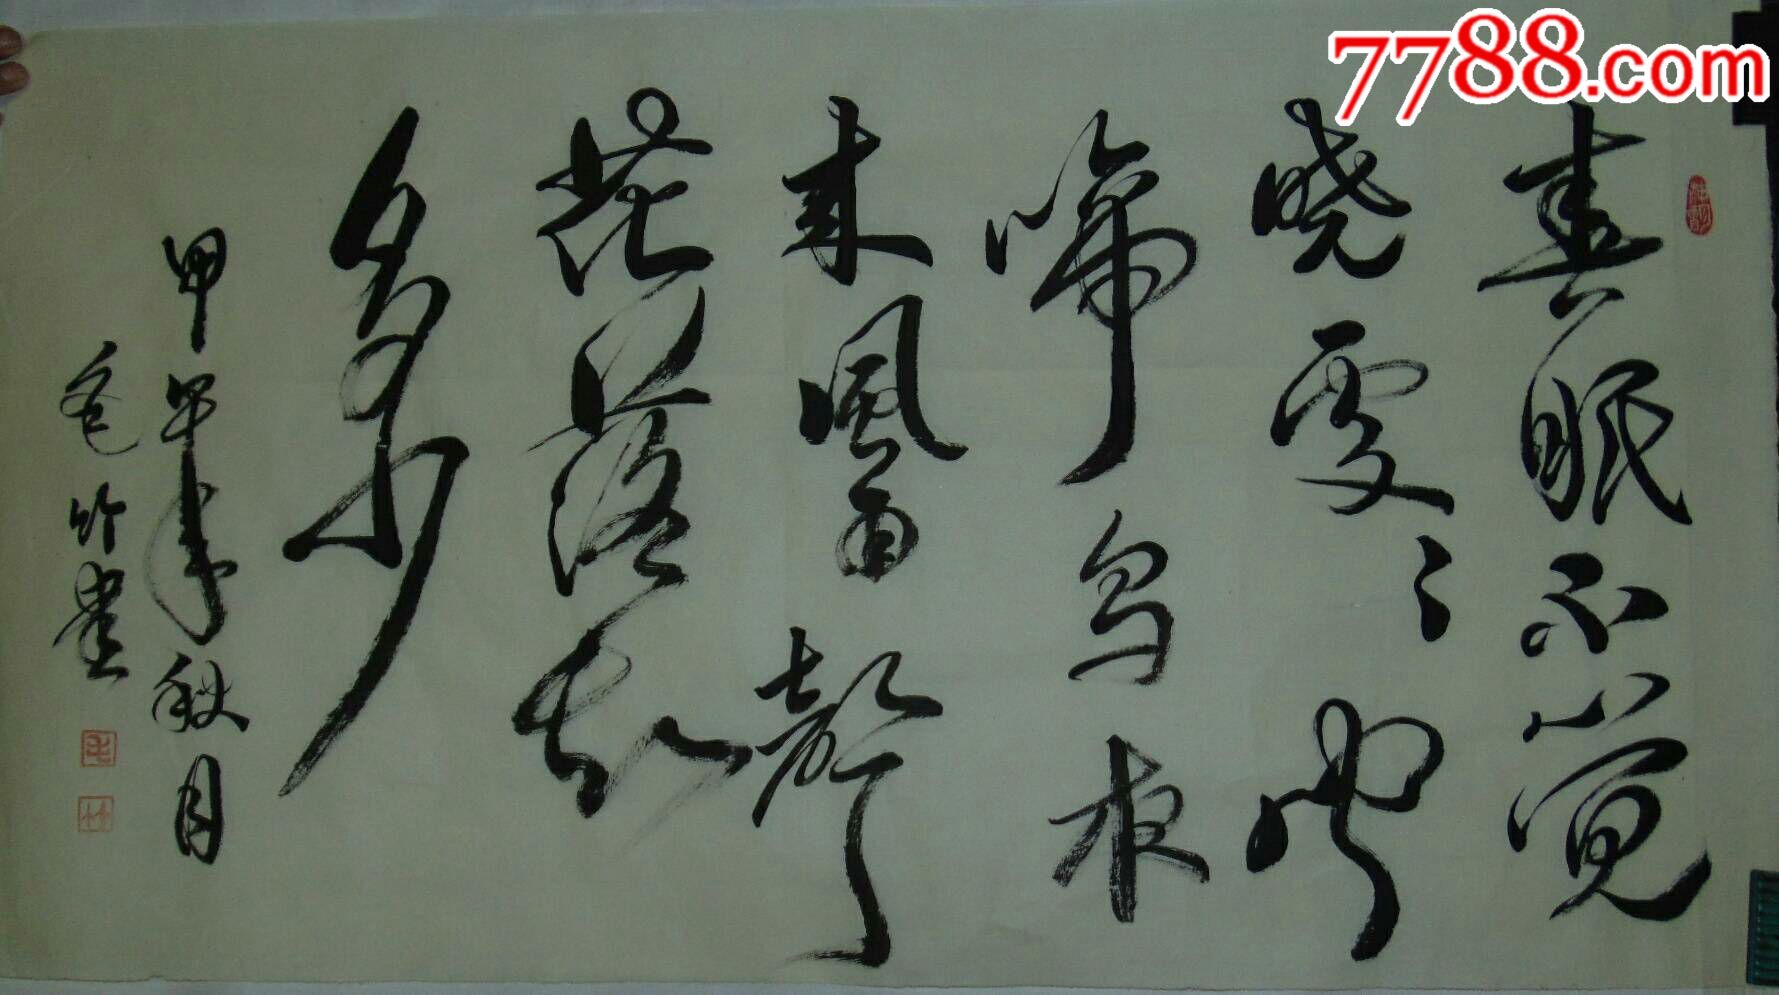 春眠不觉
晓处々闻
啼鸟夜
来风雨声
花落知
多少
甲午年秋月
竹书
7788.com